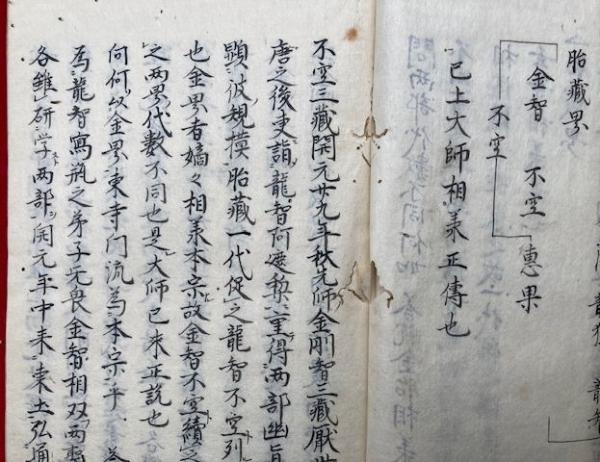 胎藏界
金智 不空 惠果
不空
已上大師相承正傳也
不空三藏開元廿九年秋先師金剛智三藏厭世
唐之後更詣龍智阿遮梨重得两部幽旨
顕彼規摸胎藏一代促之龍智不空列
也金界者嫡々相承本宗故金智不空續之
之两界代数不同也是大師已来正説也
問何故金界東寺門流為本宗乎 答
為龍智寫瓶之弟子无畏金智相双两
各雖研学两部開元年中来東土弘通